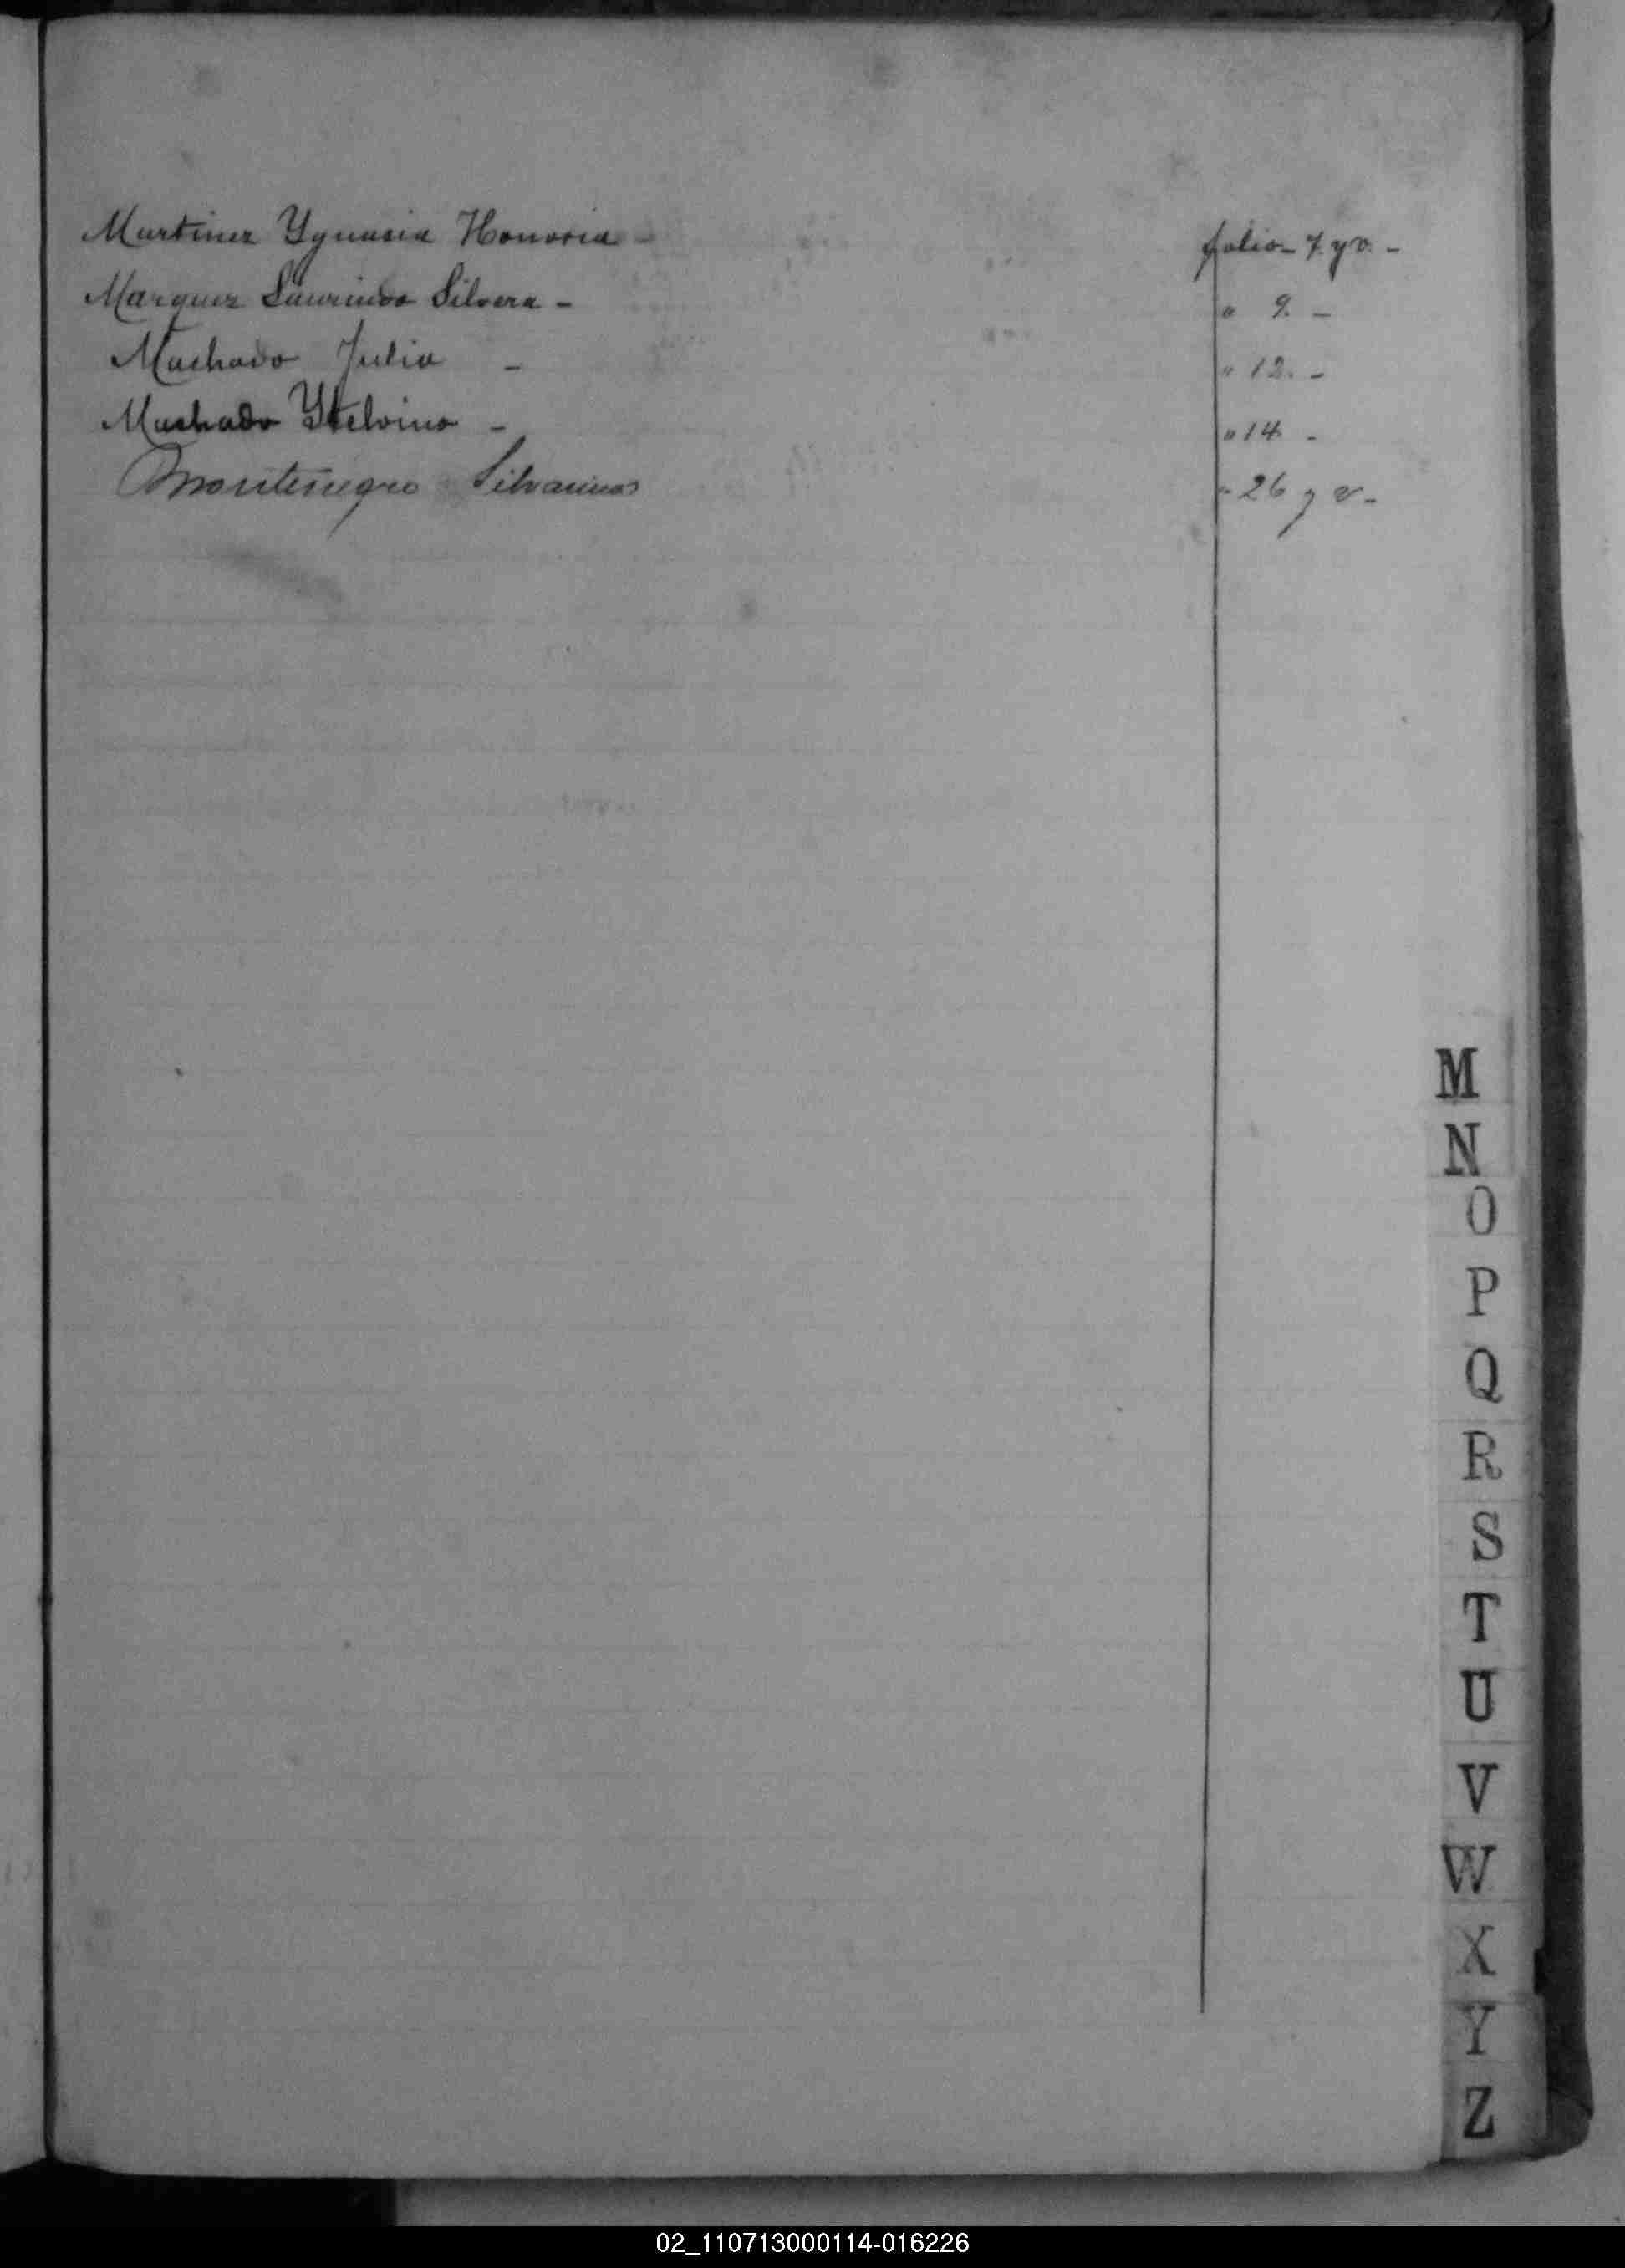 Martinez Ygnasia Honoria - folio - 7. y v. -
Marquez Laurindo Silvera - " 9. -
Machado Julia - " 12. -
Machado Ytelvino - " 14 -
Montenegro Silvarinas " 26 y v -
M
N
O
P
Q
R
S
T
U
V
W
X
Y
Z
02_110713000114-016226